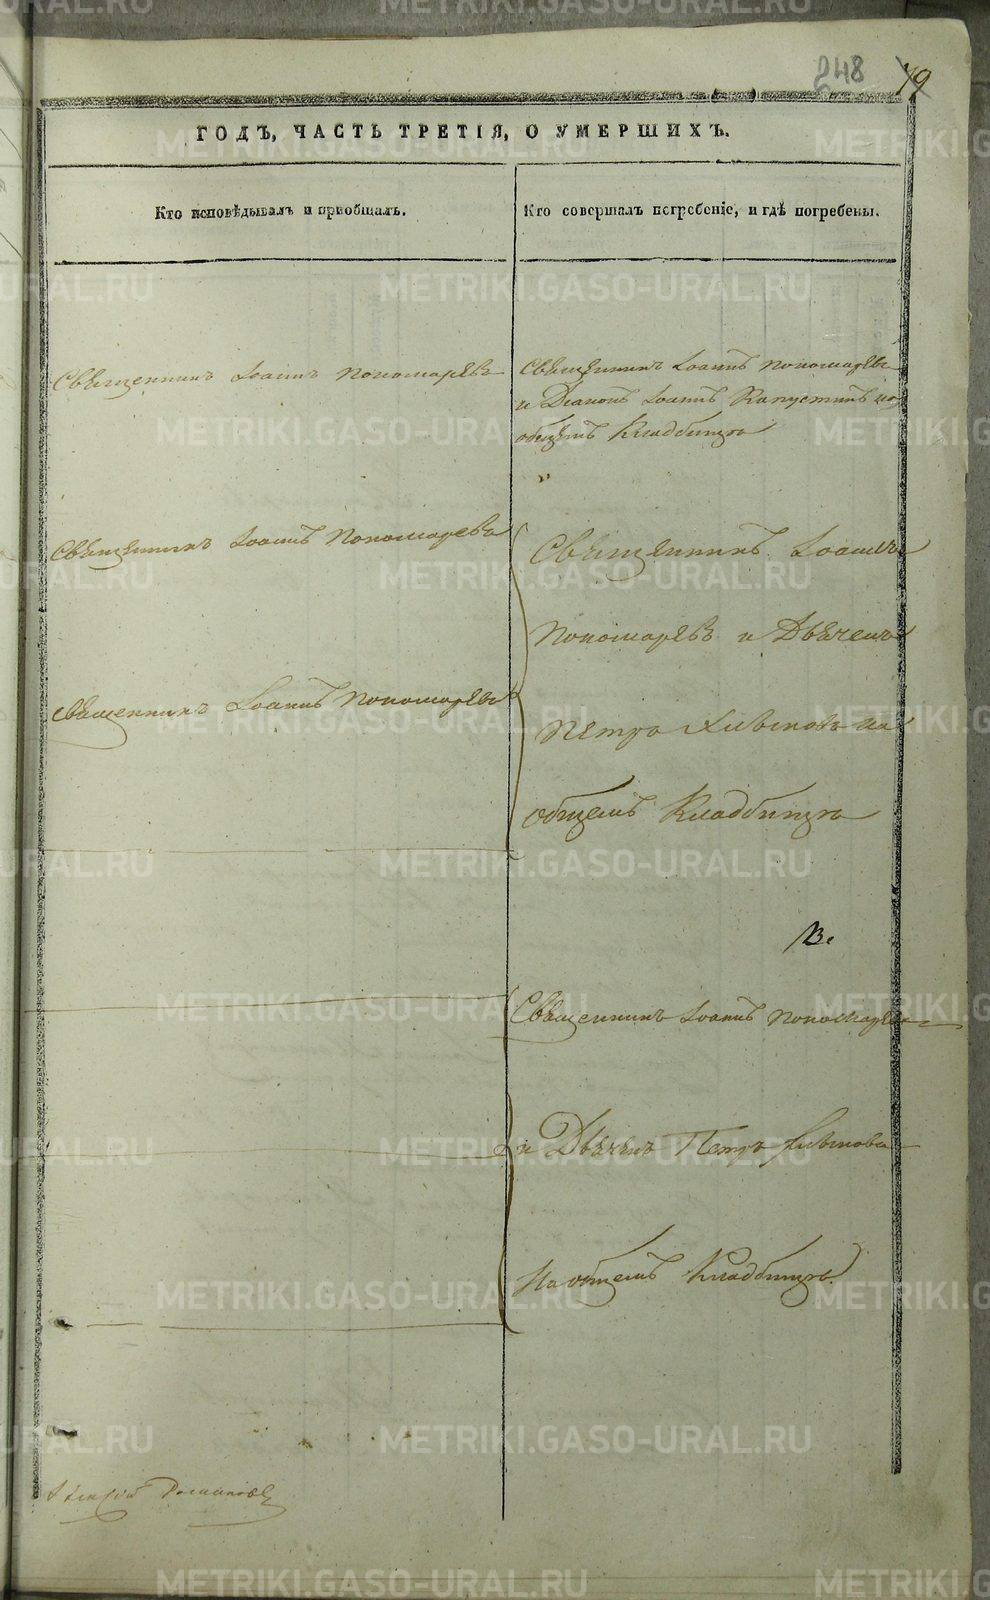 248
79
ГОДЪ, ЧАСТЬ ТРЕТІЯ, О УМЕРШИХЪ.
Кто исповѣдывалъ и пріобщалъ.
Кто совершалъ погребеніе, и гдѣ погребены.
Священникъ Іоаннъ Пономаревъ
Священникъ Іоаннъ Пономаревъ
и Діаконъ Іоаннъ Капустинъ на
общемъ Кладбищѣ
Священникъ Іоаннъ Пономаревъ
Священникъ Іоаннъ
Пономаревъ и Дьячекъ
Священникъ Іоаннъ Пономаревъ
Петръ на
общемъ Кладбищѣ
Священникъ Іоаннъ Пономаревъ
и Дьячекъ Петръ
На общемъ Кладбищѣ
METRIKI.GASO-URAL.RU